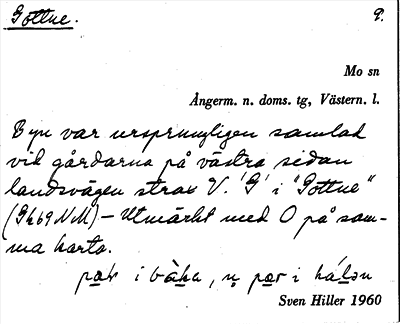 Gottne. P.
Mo sn
Ångerm. n. doms. tg, Västern. l.
Byn var ursprungligen samlad
vid gårdarna på västra sidan
landsvägen strax V. 'G' i "Gottne"
(Sh69NM) – Utmärkt med O på sam-
ma karta.
i i
Sven Hiller 1960